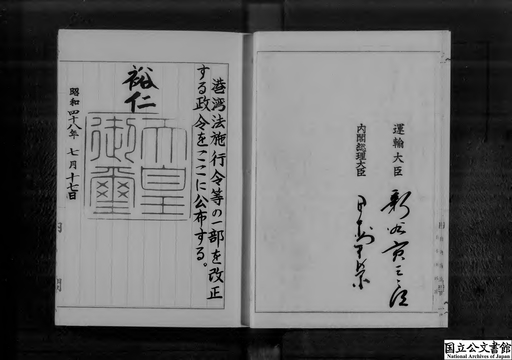 運輸大臣 新谷寅三郎
内閣総理大臣 田中角榮
港湾法施行令等の一部を改正
する政令をここに公布する。
裕仁
天皇
御璽
昭和四十八年七月十七日
国立公文書館
National Archives of Japan